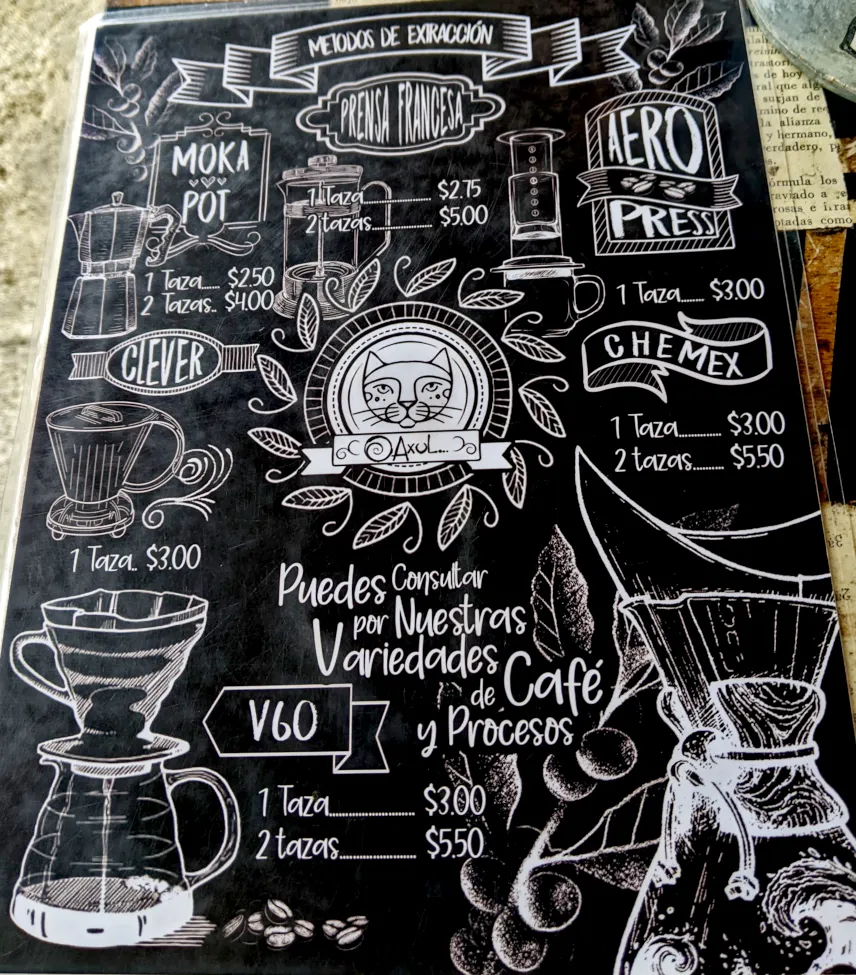 METODOS DE EXTRACCIÓN
PRENSA FRANCESA
1 Taza............ $2.75
2 tazas............ $5.00
MOKA
POT
1 Taza..... $2.50
2 Tazas.. $4.00
AERO
PRESS
1 Taza...... $3.00
CLEVER
1 Taza.. $3.00
CHEMEX
1 Taza.......... $3.00
2 tazas........ $5.50
OAxul...
Puedes Consultar
por Nuestras
Variedades
de Café
y Procesos
V60
1 Taza.................... $3.00
2 tazas.................. $5.50
de hoy
surjan de
mino de
la alianza
y hermano,
rmula los
tadas como